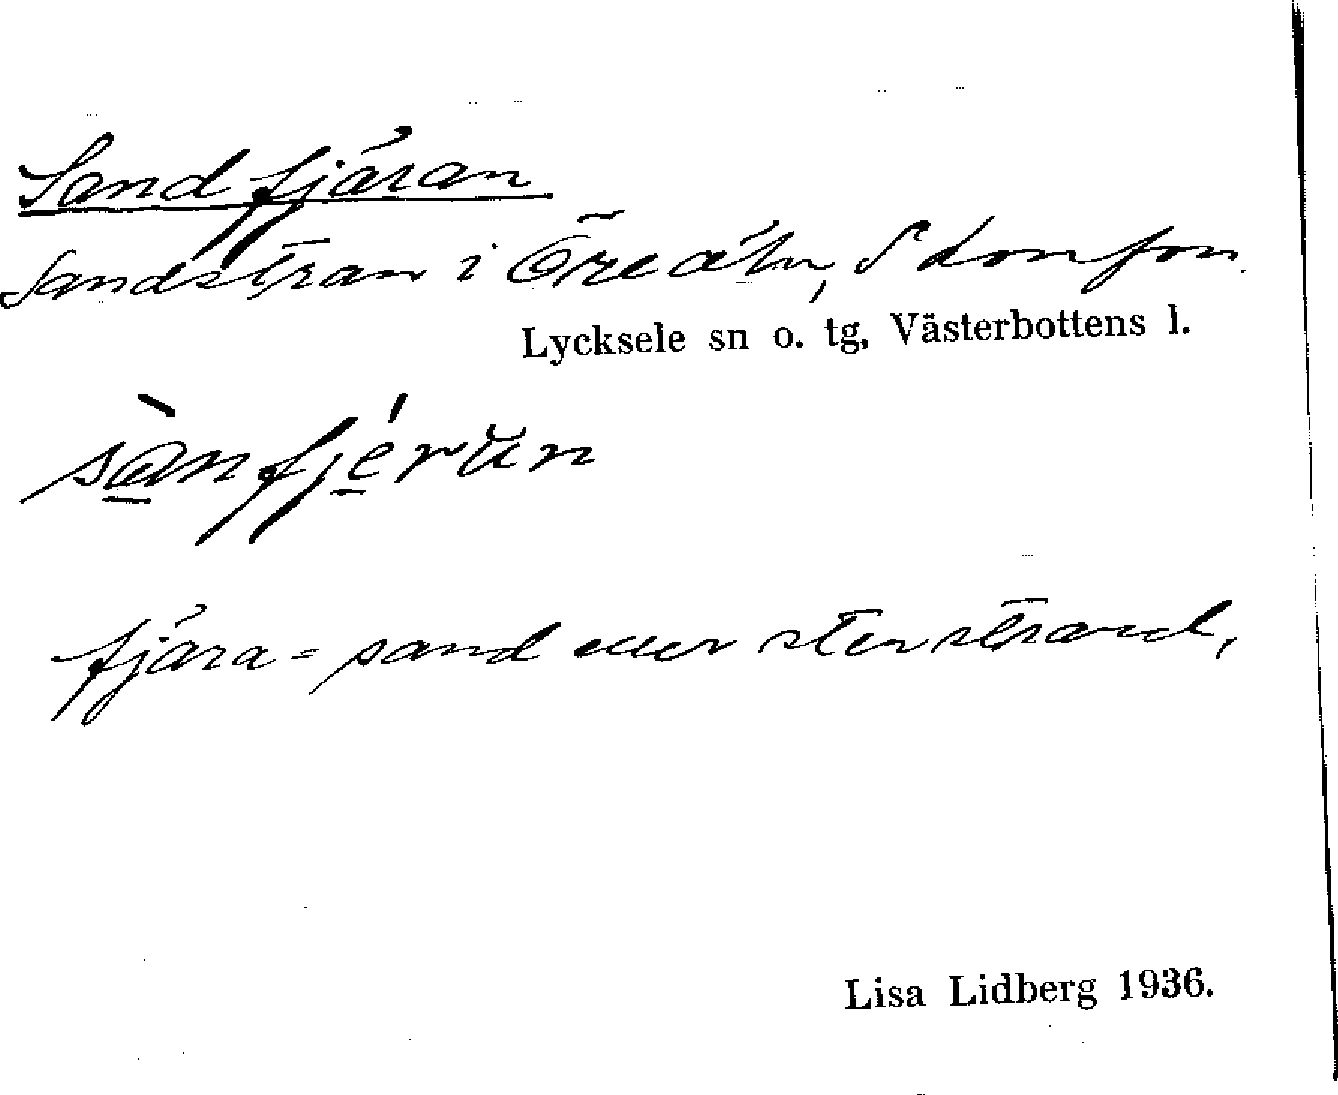 Sandfjäran
Sandstran i Öreälv, S
Lycksele sn o. tg. Västerbottens l.
sànfjérŭn
fjära = sand eller stenstrand,
Lisa Lidberg 1936.